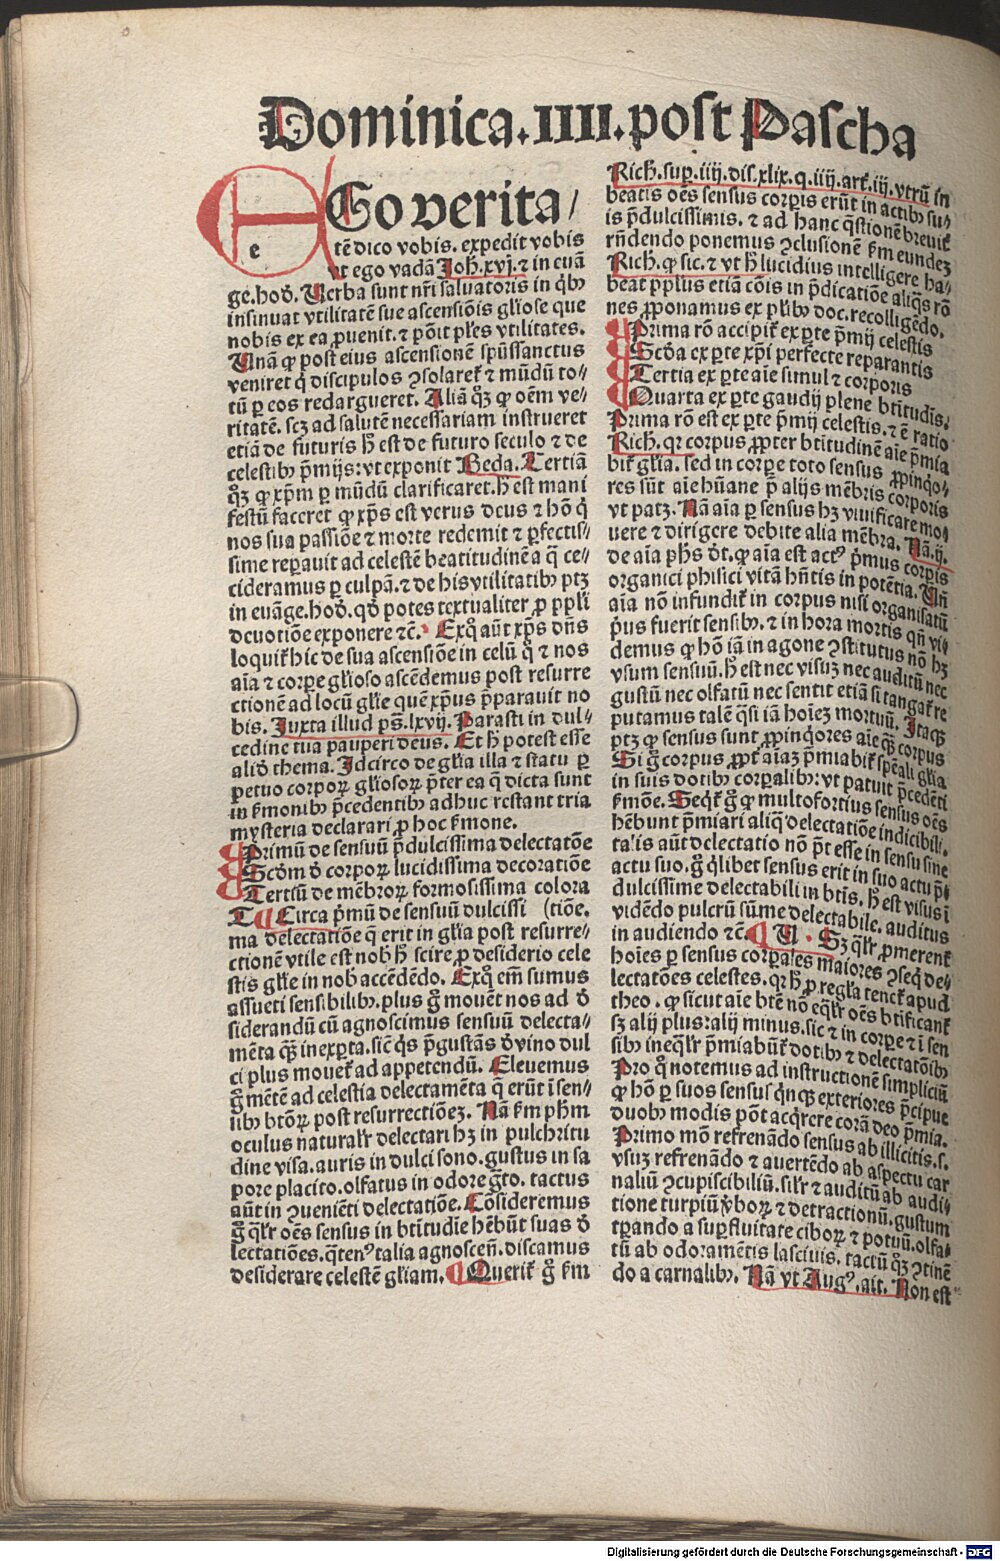 Dominica.IIII.post Pascha
EGo verita/
e
tē dico vobis. expedit vobis
vt ego vadā Joh̄.xvj.⁊ in euā
ge.hod̄. Uerba sunt nr̄i saluatoris in qͥbꝫ
insinuat vtilitatē sue ascensiōis gl̄iose que
nobis ex ea ꝓuenit.⁊ pōit ptēs vtilitates.
Unā ꝙ post eius ascensionē spūssanctus
veniret q̇ discipulos ꝯsolaret᷑ ⁊ mūdū to⸗
tū ꝑ eos redargueret. Aliā qꝫ ꝙ oēm ve⸗
ritatē. scꝫ ad salutē necessariam instrueret
etiā de futuris h̄ est de futuro seculo ⁊ de
celestibꝫ p̄mijs: vt exponit Beda. Tertiā
qꝫ ꝙ xp̄m ꝑ mūdū clarificaret. h̄ est mani
festū faceret ꝙ xp̄s est verus deus ⁊ hō q̇
nos sua passiōe ⁊ morte redemit ⁊ ꝑfectis⸗
sime reꝑauit ad celestē beatitudinē a q̄ ce⸗
cideramus ꝑ culpā.⁊ de his vtilitatibꝫ ptꝫ
in euāge.hod̄. qd̄ potes textualiter ꝓ ppl̄i
deuotiōe exponere ⁊c̄. Exqͦ aūt xp̄s dn̄s
loquit᷑ hic de sua ascensiōe in celū q̄ ⁊ nos
aīa ⁊ corꝑe gl̄ioso ascēdemus post resurre
ctionē ad locū gl̄ie quē xp̄us p̄parauit no
bis. Juxta illud ps̄.lxvij. Parasti in dul⸗
cedine tua pauperi deus. Et h̄ potest esse
aliḋ thema. Idcirco de gl̄ia illa ⁊ statu ꝑ
petuo corpoꝝ gl̄iosoꝝ p̄ter ea q̄ dicta sunt
in ẜmonibꝫ p̄cedentibꝫ adhuc restant tria
mysteria declarari ꝓ hoc ẜmone.
¶ Primū de sensuū p̄dulcissima delectatōe
¶ Scd̄m ḋ corpoꝝ lucidissima decoratiōe
¶ Tertiū de mēbroꝝ formosissima colora
T ¶ Circa p̄mū de sensuū dulcissi (tiōe.
ma delectatiōe q̄ erit in gl̄ia post resurre⸗
ctionē vtile est nob̄ h̄ scire ꝓ desiderio cele
stis gl̄ie in nob̄ accēdēdo. Exqͦ em̄ sumus
assueti sensibilibꝫ. plus g̊ mouēt nos ad ḋ
siderandū cū agnoscimus sensuū delecta⸗
mēta qꝫ inexꝑta. sic̄ qͥs p̄gustās ḋvino dul
ci plus mouet᷑ ad appetendū. Eleuemus
g̊ mētē ad celestia delectamēta q̄ erūt ī sen⸗
sibꝫ btōꝝ post resurrectiōeꝫ. Nā ẜm ph̄m
oculus naturalr̄ delectari hꝫ in pulchritu
dine visa. auris in dulci sono. gustus in sa
pore placito. olfatus in odore gͣto. tactus
aūt in ꝯueniēti delectatiōe. Cōsideremus
g̊ qͣlr̄ oēs sensus in btitudīe hēbūt suas ḋ
lectatiōes. q̄ten⁹ talia agnoscen̄. discamus
desiderare celestē gl̄iam. ¶ Querit᷑ g̊ ẜm
Rich̄. suꝑ.iiij.dis.xlix.q.iiij.art᷑.iij. vtrū in
beatis oēs sensus corꝑis erūt in actibꝫ su⸗
is p̄dulcissimis. ⁊ ad hanc q̄stionē breuit᷑
rn̄dendo ponemus ꝯclusionē ẜm eundeꝫ
Rich̄. ꝙ sic. ⁊ vt h̄ lucidius intelligere ha⸗
beat ppl̄us etiā cōis in p̄dicatiōe aliq̄s rō
nes ꝓponamus ex pl̄ibꝫ doc. recolligēdo.
¶ Prima rō accipit᷑ ex ꝑte p̄mij celestis
¶ Scd̄a ex ꝑte xp̄i perfecte reparantis
¶ Tertia ex ꝑte aīe simul ⁊ corporis
¶ Quarta ex ꝑte gaudij plene btitudīs.
Prima rō est ex ꝑte p̄mij celestis. ⁊ ē ratio
Rich̄. qꝛ corpus ꝓpter btitudinē aīe p̄mia
bit᷑ gl̄ia. sed in corꝑe toto sensus ꝓpinqͦ⸗
res sūt aīe hūane p̄ alijs mēbris corporis
vt patꝫ. Nā aīa ꝑ sensus hꝫ viuificare mo⸗
uere ⁊ dirigere debite alia mēbra. Nā.ij.
de aīa ph̄s d̄t. ꝙ aīa est act⁹ p̄mus corꝑis
organici phisici vitā hn̄tis in potētia. Un̄
aīa nō infundit᷑ in corpus nisi organisatū
p̄us fuerit sensibꝫ. ⁊ in hora mortis qn̄ vi⸗
demus ꝙ hō iā in agone ꝯstitutus nō hꝫ
vsum sensuū. h̄ est nec visuꝫ nec auditū nec
gustū nec olfatū nec sentit etiā si tangat᷑ re
putamus talē qͣsi iā hoīeꝫ mortuū. Itaqꝫ
ptꝫ ꝙ sensus sunt ꝓpinqͦres aīe qꝫ corpus
Si g̊ corpus ꝓpt᷑ aīaꝫ p̄miabit᷑ spēali gl̄ia
in suis dotibꝫ corꝑalibꝫ: vt patuit p̄cedēti
ẜmōe. Seqͥt᷑ g̊ ꝙ multofortius sensus oēs
hēbunt p̄miari aliq̄ delectatiōe indicibili.
talis aūt delectatio nō pt̄ esse in sensu sine
actu suo. g̊ qͥlibet sensus erit in suo actu p̄⸗
dulcissime delectabili in btīs. h̄ est visus ī
vidēdo pulcrū sūme delectabile. auditus
in audiendo ⁊c̄. ¶ U. Sꝫ qͣlr̄ ꝓmerent᷑
hoīes ꝑ sensus corꝑales maiores ꝯseq̄ de⸗
lectatōes celestes. qꝛ h̄ ꝓ regl̄a tenet᷑ apud
theo. ꝙ sicut aīe btē nō eqͣlr̄ oēs btificant᷑
sꝫ alij plus: alij minus. sic ⁊ in corꝑe ⁊ ī sen
sibꝫ ineqͣlr̄ p̄miabūt᷑ dotibꝫ ⁊ delectatōibꝫ
Pro qͦ notemus ad instructionē simpliciū
ꝙ hō ꝑ suos sensus qͥnqꝫ exteriores p̄cipue
duobꝫ modis pōt acqͥrere corā deo p̄mia.
Primo mō refrenādo sensus ab illicitis. s.
vsuꝫ refrenādo ⁊ auertēdo ab aspectu car
naliū ꝯcupiscibiliū. sil̄r ⁊ auditū ab audi⸗
tione turpiū v̄boꝝ ⁊ detractionū. gustum
tꝑando a suꝑfluitate ciboꝝ ⁊ potuū. olfa⸗
tū ab odoramētis lasciuis. tactū qꝫ ꝯtinē
do a carnalibꝫ. Nā vt Aug⁹. ait. Non est
Digitalisierung gefördert durch die Deutsche Forschungsgemeinschaft - DFG